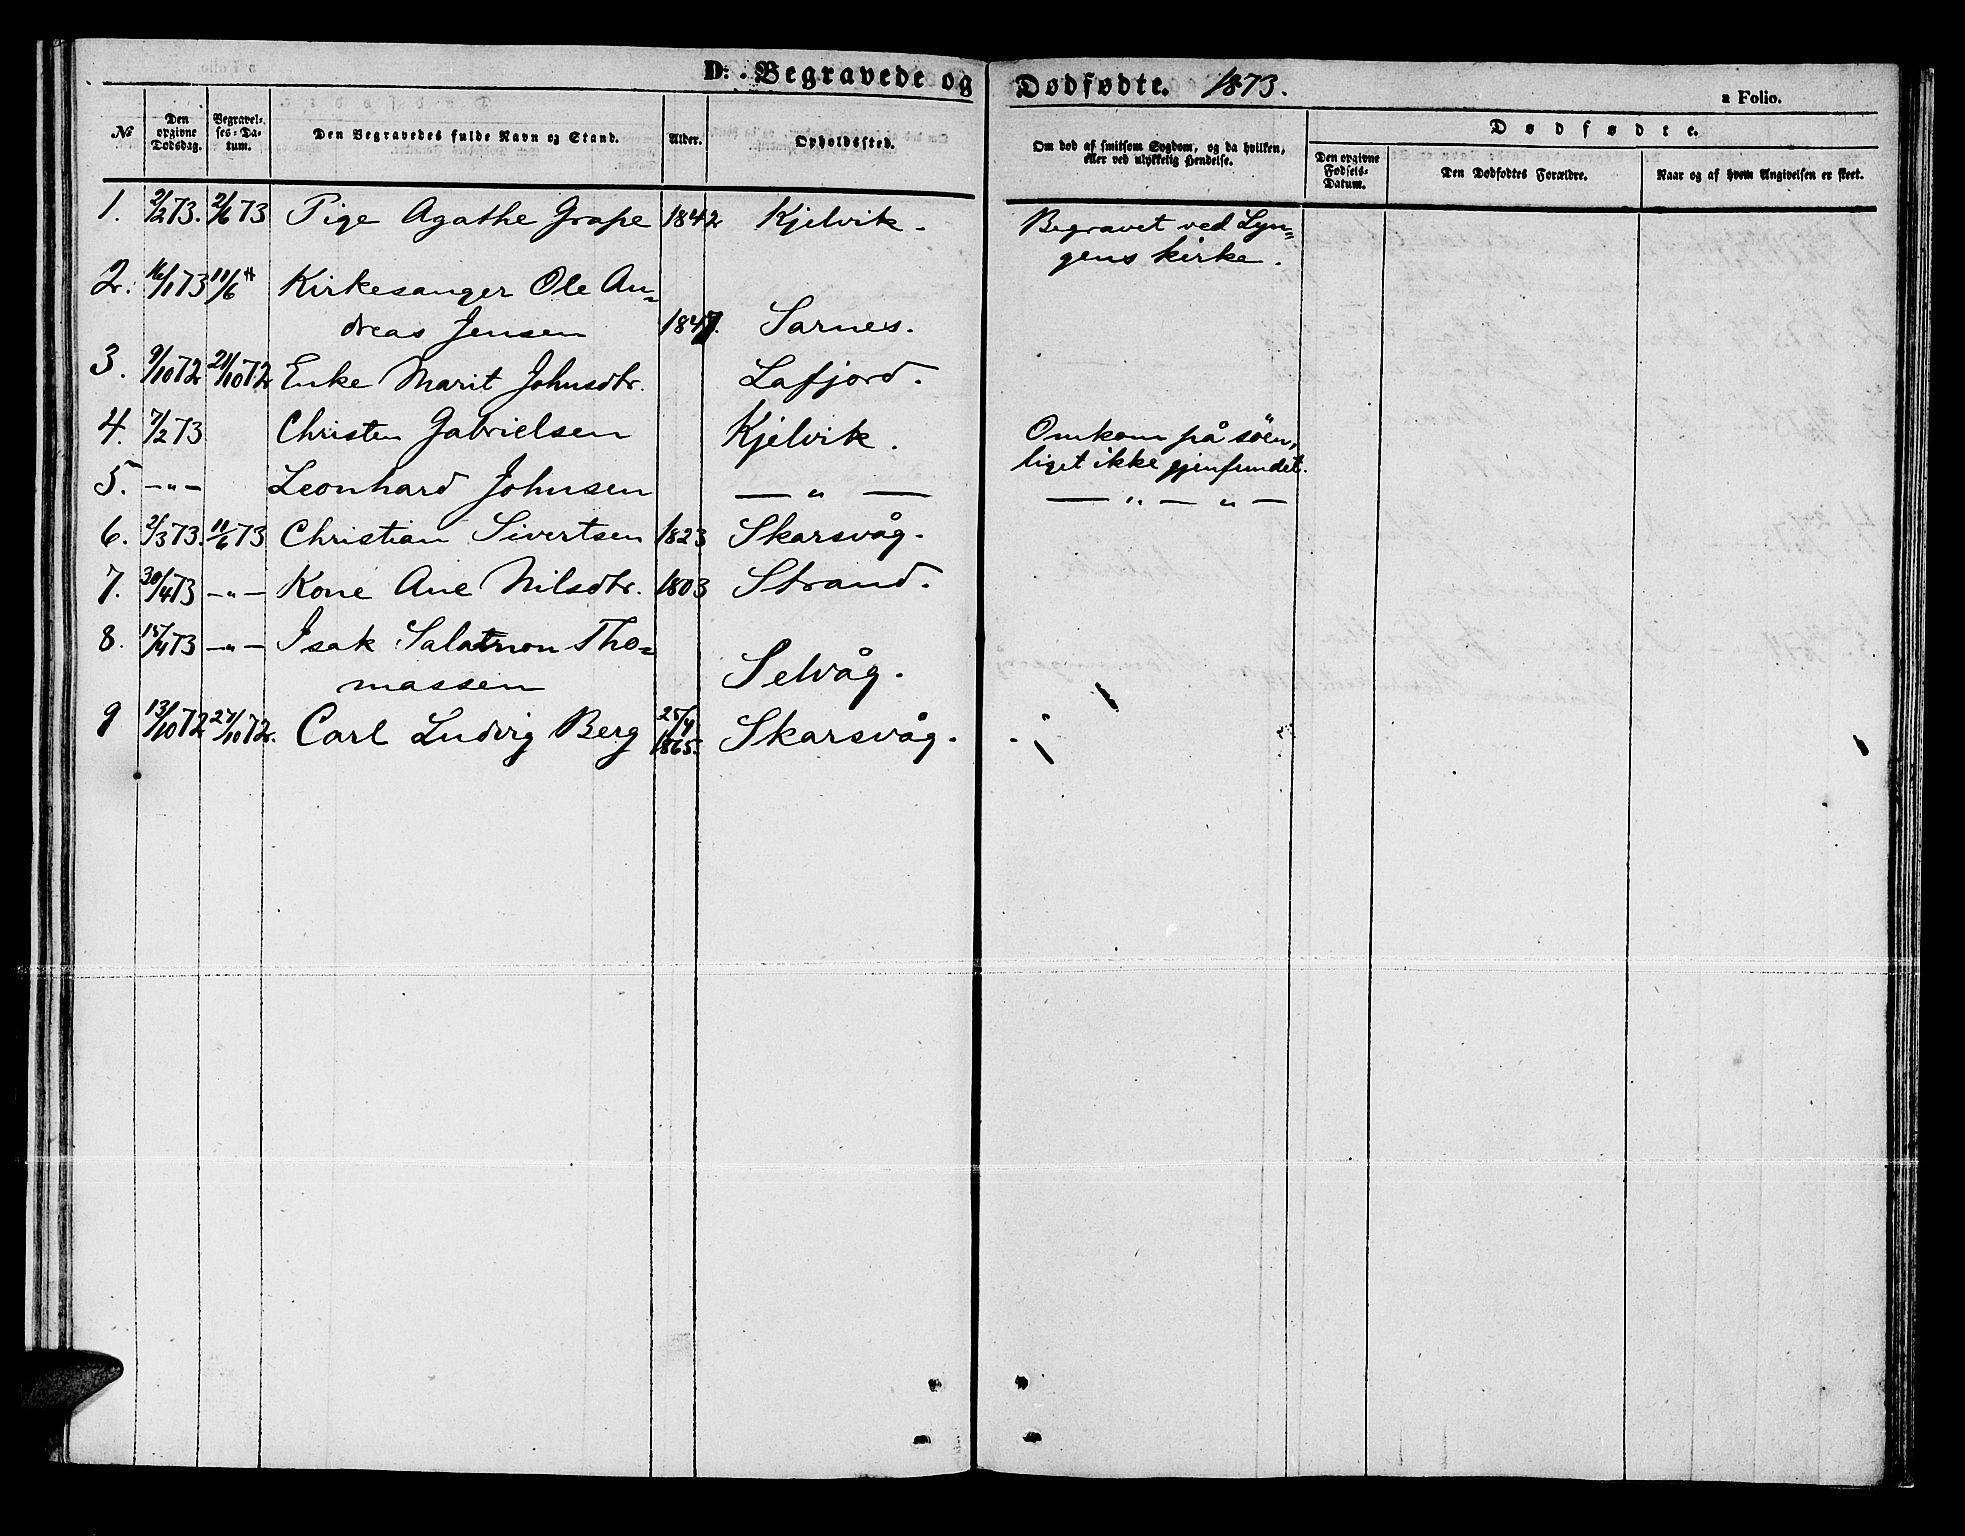 D: Begravede og Dødfødte. 1873.
a Folio.
№ Den opgivne Dødsdag. Begravelses-Datum. Den Begravedes fulde Navn og Stand. Alder. Opholdssted. Om død af smitsom Sygdom, og da hvilken, eller ved ulykkelig Hendelse. Dødfødte.
Den opgivne Fødsels-Datum. Den Dødfødtes Forældre. Naar og af hvem Angivelsen er skeet.
1. 2/2 73. 2/6 73 Pige Agathe Grape 1842 Kjelvik. Begravet ved Lyn=
gens kirke.
2. 16/1 73 11/6 " Kirkesanger Ole An=
dreas Jensen 1847. Sarnes.
3. 9/10 72 21/10 72 Enke Marit Johnsdtr. Lafjord.
4. 7/2 73 Christen Gabrielsen Kjelvik. Omkom på söen,
liget ikke gjenfundet.
5. — " — Leonhard Johnsen — " — — " — " —
6. 2/3 73. 11/6 73 Christian Sivertsen 1823 Skarsvåg.
7. 30/4 73 — " — Kone Ane Nilsdtr. 1803 Strand.
8. 15/4 73 — " — Isak Salamon Tho=
massen Selvåg.
9 13/10 72 27/10 72. Carl Ludvig Berg 25/4
1865. Skarsvåg.